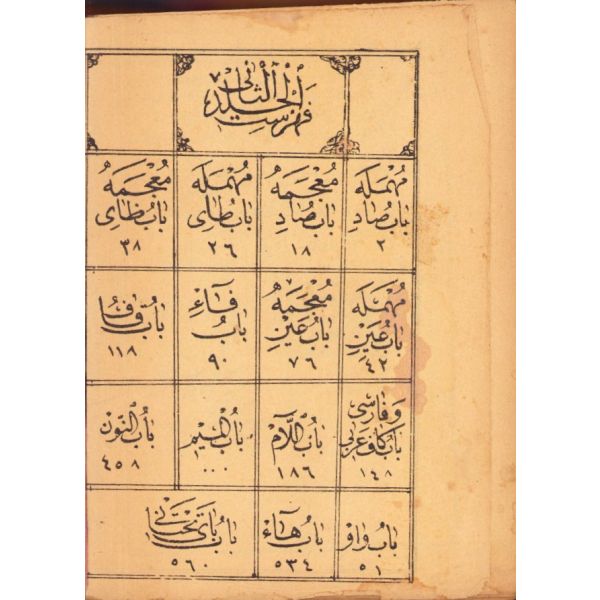 فهرست الجلد الثانى
باب صاد مهمله
٢
باب ضاد معجمه
١٨
باب طاى مهمله
٢٦
باب ظاى معجمه
٣٨
باب عين مهمله
٤٢
باب غين معجمه
٧٦
باب فاء
٩٠
باب قاف
١١٨
باب كاف عربى وفارسى
١٤٨
باب اللام
١٨٦
باب الميم
٠٠٠
باب النون
٤٥٨
باب واو
٥١
باب هاء
٥٣٤
باب ياى تحتانى
٥٦٠